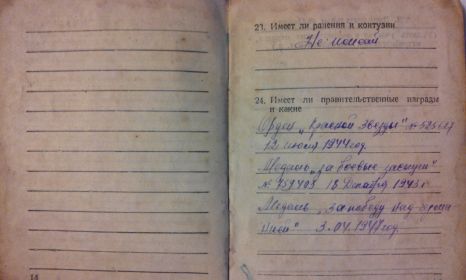 23. Имеет ли ранения и контузии
Не имеет
24. Имеет ли правительственные награды
и какие
Орден „Красной Звезды" №
12 июня 1944 год.
Медаль „за боевые заслуги"
№ 789403 18 Декабря 1943 г
Медаль „за победу над Герма
нией" 3.04.1947 год.
14